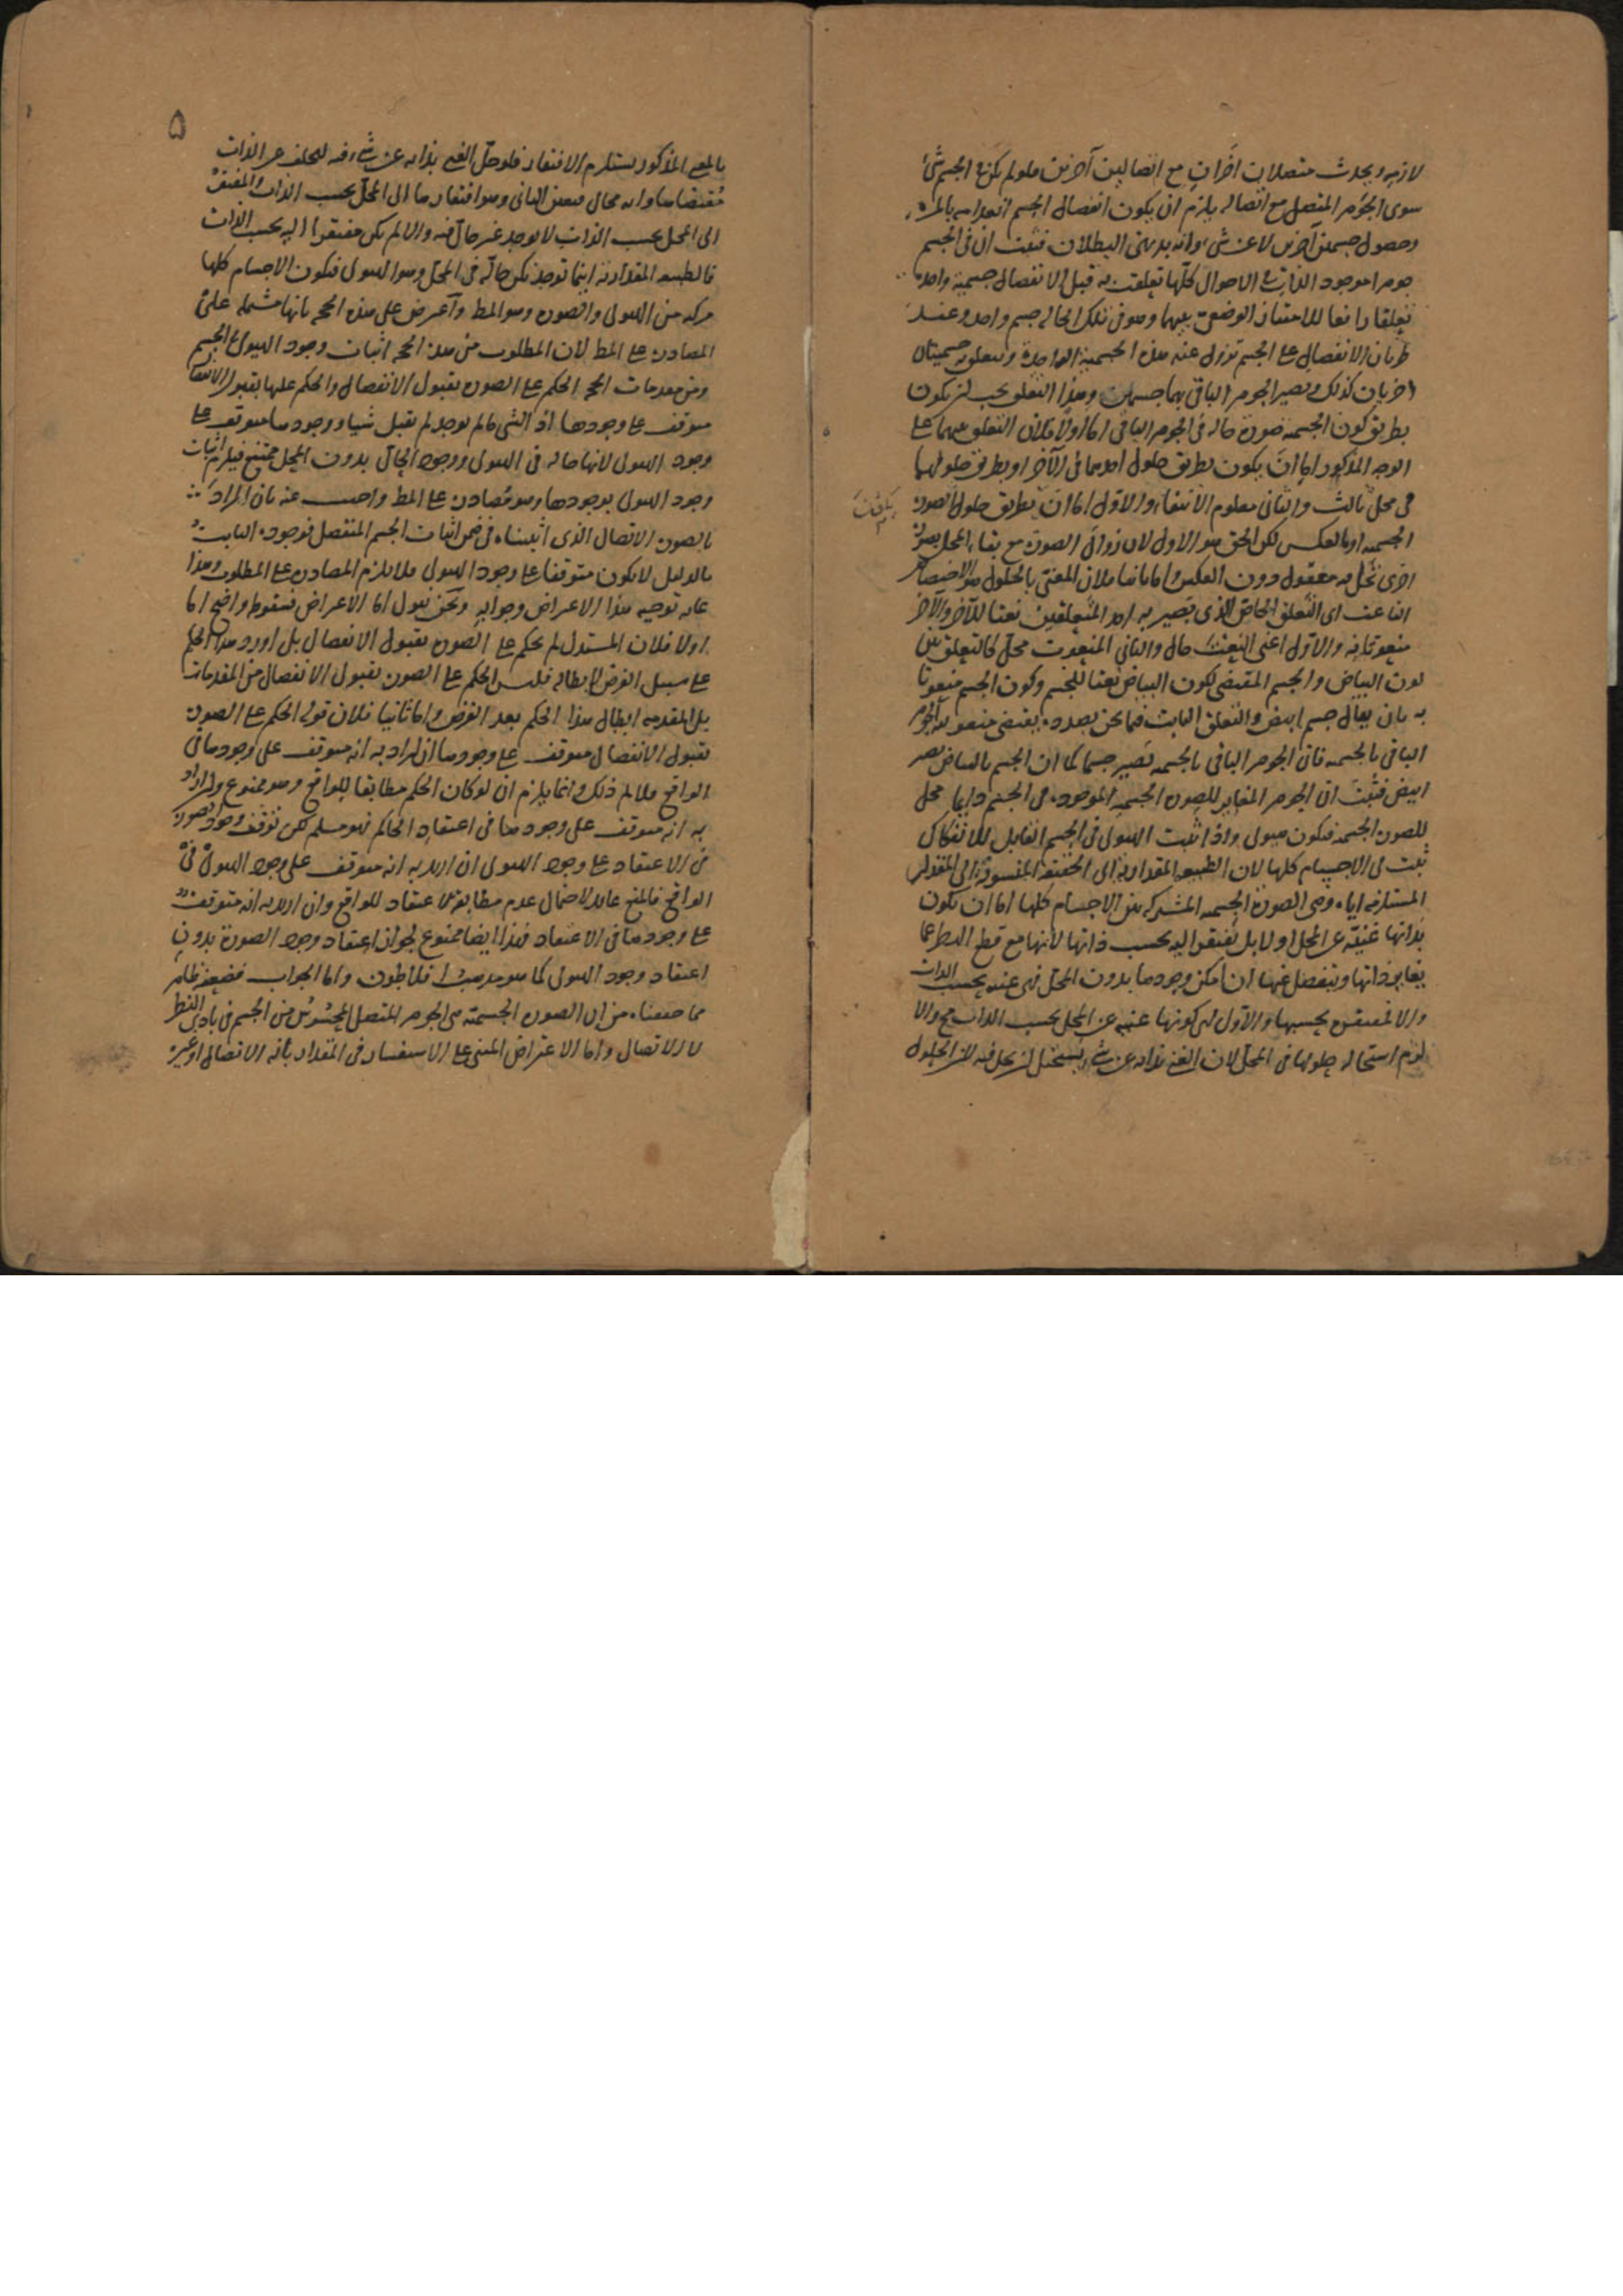 لازمه ويحدث متصلات اخرات مع اتصالين آخرين فلو لم يكن في الجسم شئ
سوى الجوهر المتصل مع اتصاله يلزم ان يكون انفصال الجسم انعدامه بالمرة
وحصول جسمين آخرين لا عن شئ وانه بديهي البطلان فثبت ان في الجسم
جوهرا موجود الذات في الاحوال كلها تعلقت به قبل الانفصال جسمية واحدة
تعلقا رافعا للامتياز الوضعي بينهما وهو في تلك الحالة جسم واحد وعند
طريان الانفصال على الجسم تزول عنه هذه الجسمية الواحدة وتتعلق به جسميتان
اخريان كذلك ويصير الجوهر الباقي بهما جسمان وهذا التعلق يجب ان يكون
بطريق كون الجسمية صورة حالة في الجوهر الباقي اما اولا فلان التعلق بينهما على
الوجه المذكور اما ان يكون بطريق حلول احدهما في الآخر او بطريق حلولهما
في محل ثالث والثاني معلوم الانتفاء والاول اما ان يكون بطريق حلول الصورة
الجسمية او بالعكس لكن الحق هو الاول لان زوال الصورة مع بقاء المحل بصورة
اخرى تحل به معقول دون العكس واما ثانيا فلان المعني بالحلول هو الاختصاص
الناعت اى التعلق الخاص الذى يصير به احد المتعلقين نعتا للآخر والآخر
منعوتا به والاول اعنى النعت حال والثاني المنعوت محل كالتعلق بين
لون البياض والجسم المقتضى لكون البياض نعتا للجسم وكون الجسم منعوتا
به بان يقال جسم ابيض والتعلق الثابت فيما نحن بصدده يقتضى منعوتية الجوهر
الباقي بالجسمية فان الجوهر الباقي بالجسمية يصير جسما كما ان الجسم بالبياض يصير
ابيض فثبت ان الجوهر المغاير للصورة الجسمية الموجودة في الجسم دايما محل
للصورة الجسمية فيكون هيولى واذا ثبت الهيولى في الجسم القابل للانفكاك
ثبت في الاجسام كلها لان الطبيعة المقدارية اى الحقيقة المنسوبة الى المقدار
المستلزمة اياه وهى الصورة الجسمية المشتركة بين الاجسام كلها اما ان تكون
بذاتها غنية عن المحل او لا بل تفتقر اليه بحسب ذاتها لانها مع قطع النظر عما
يغاير ذاتها وينفصل عنها ان امكن وجودها بدون المحل فهى غنية بحسب الذات
والا فمفتقرة بحسبها والاول اى كونها غنية عن المحل بحسب الذات مح والا
لزم استحالة حلولها في المحل لان الغنى بذاته عن شئ يستحيل ان يحل فيه لان الحلول
۵
بالمعنى المذكور يستلزم الافتقار فلو حل الغنى بذاته عن شئ فيه لتخلف عن الذات
مقتضاها وانه محال فتعين الثاني وهو افتقارها الى المحل بحسب الذات والمفتقر
الى المحل بحسب الذات لا يوجد غير حال فيه والا لم يكن مفتقرا اليه بحسب الذات
فالطبيعة المقدارية اينما توجد تكن حالة في المحل وهو الهيولى فيكون الاجسام كلها
مركبة من الهيولى والصورة وهو المط وآعترض على هذه الحجة بانها مشتملة على
المصادرة على المط لان المطلوب من هذه الحجة اثبات وجود الهيولى في الجسم
ومن مقدمات الحجة الحكم على الصورة بقبول الانفصال والحكم عليها بقبول الانفصال
متوقف على وجودها اذ الشئ ما لم يوجد لم يقبل شيا ووجودها متوقف على
وجود الهيولى لانها حالة في الهيولى ووجود الحال بدون المحل ممتنع فيلزم اثبات
وجود الهيولى بوجودها وهو مصادرة على المط واجيب عنه بان المراد
بالصورة الاتصال الذى اثبتناه في ضمن اثبات الجسم المتصل فوجوده الثابت
بالدليل لا يكون متوقفا على وجود الهيولى فلا يلزم المصادرة على المطلوب وهذا
غاية توجيه هذا الاعتراض وجوابه ونحن نقول اما الاعتراض فسقوطه واضح اما
اولا فلان المستدل لم يحكم على الصورة بقبول الانفصال بل اورد هذا الحكم
على سبيل الفرض لابطاله فليس الحكم على الصورة بقبول الانفصال من المقدمات
بل المقدمة ابطال هذا الحكم بعد الفرض واما ثانيا فلان قوله الحكم على الصورة
بقبول الانفصال متوقف على وجودها ان اراد به انه متوقف على وجودها في
الواقع فلا نم ذلك وانما يلزم ان لو كان الحكم مطابقا للواقع وهو ممنوع وان اراد
به انه متوقف على وجودها في اعتقاد الحاكم فهو مسلم لكن توقف وجود الصورة
في الاعتقاد على وجود الهيولى ان اريد به انه متوقف على وجود الهيولى في
الواقع فالمنع عايد لاحتمال عدم مطابقة الاعتقاد للواقع وان اريد به انه متوقف
على وجودها في الاعتقاد فهذا ايضا ممنوع لجواز اعتقاد وجود الصورة بدون
اعتقاد وجود الهيولى كما هو مذهب افلاطون واما الجواب فضعفه ظاهر
مما حققناه من ان الصورة الجسمية هى الجوهر المتصل المحسوس من الجسم في بادى النظر
لا الاتصال واما الاعتراض المبنى على الاستفسار في المقدار بانه الاتصال او غيره